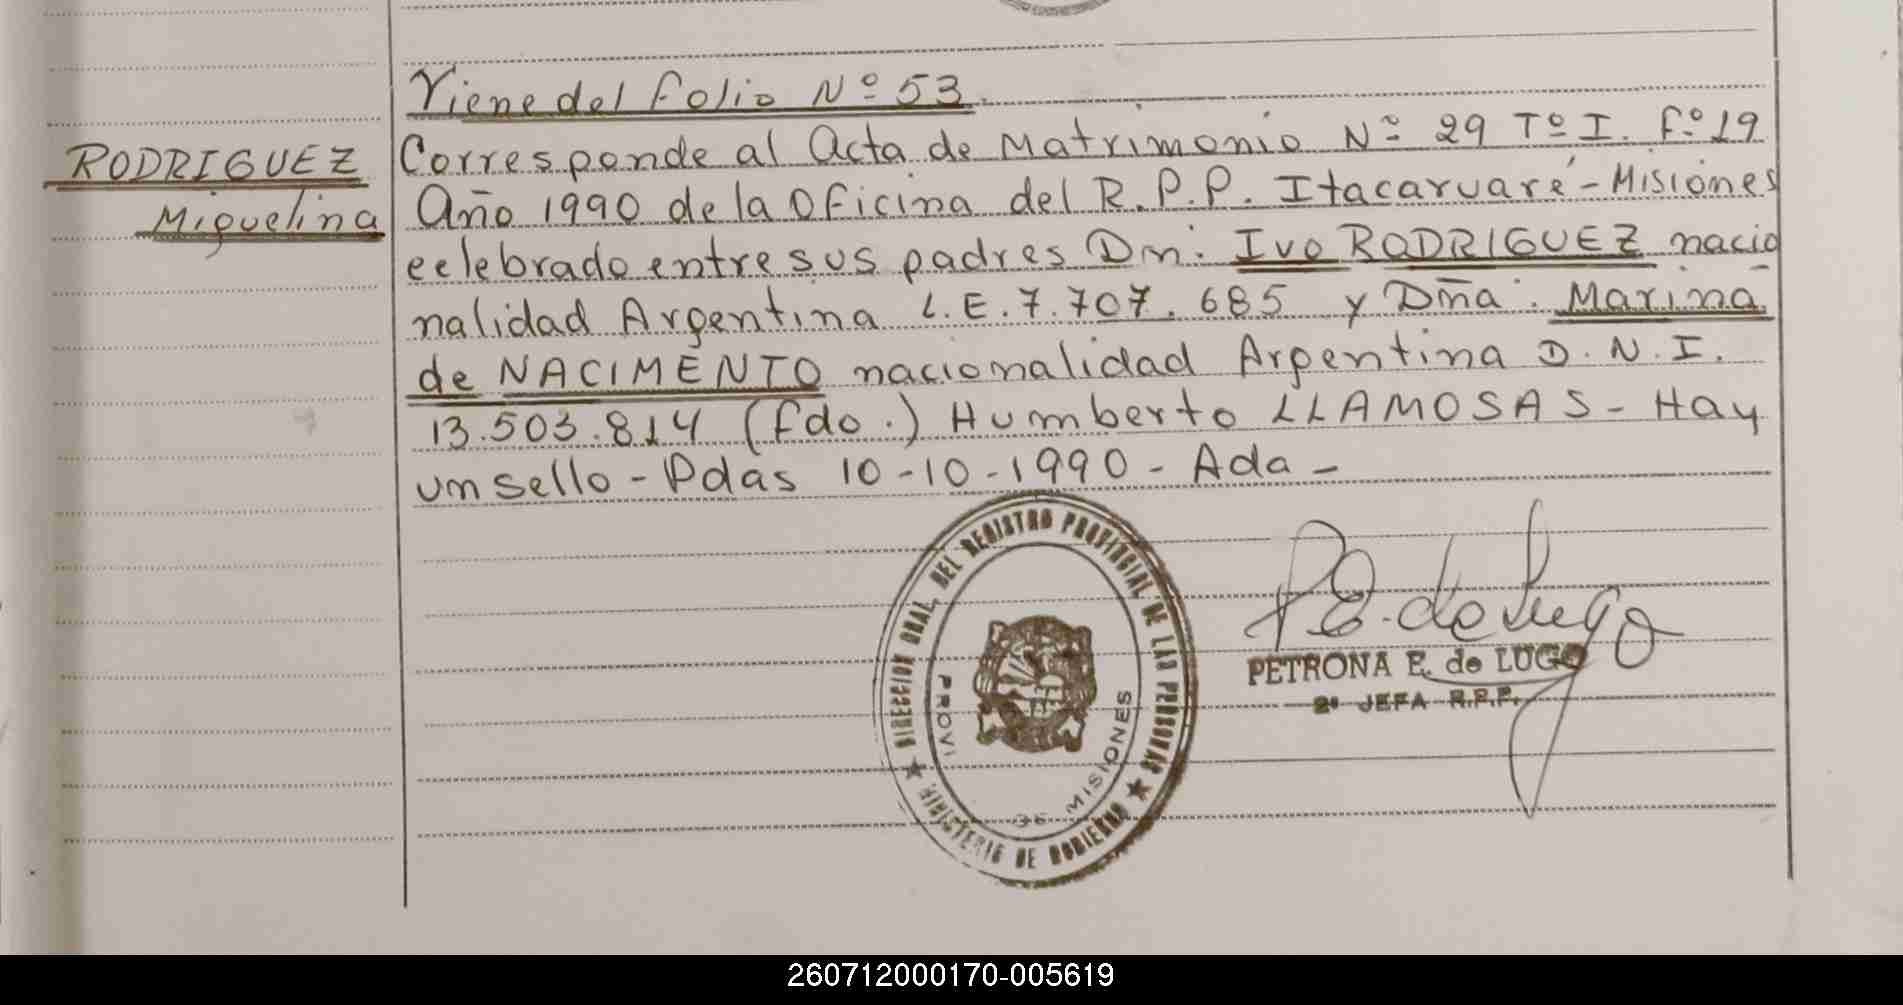 Viene del folio Nº 53.
RODRIGUEZ
Miguelina
Corresponde al Acta de Matrimonio Nº 29 Tº I. Fº 19
Año 1990 de la Oficina del R.P.P. Itacaruaré - Misiones
celebrado entre sus padres Dn. Ivo RODRIGUEZ nacio
nalidad Argentina L.E. 7.707.685 y Dña. Marina
de NACIMENTO nacionalidad Argentina D.N.I.
13.503.814 (fdo.) Humberto LLAMOSAS - Hay
un sello - Pdas 10-10-1990 - Ada -
DIRECCION GRAL. DEL REGISTRO PROVINCIAL DE LAS PERSONAS
MINISTERIO DE GOBIERNO
PROVI DE MISIONES
P E. de Lugo
PETRONA E. de LUGO
2ª JEFA R.P.P.
260712000170-005619